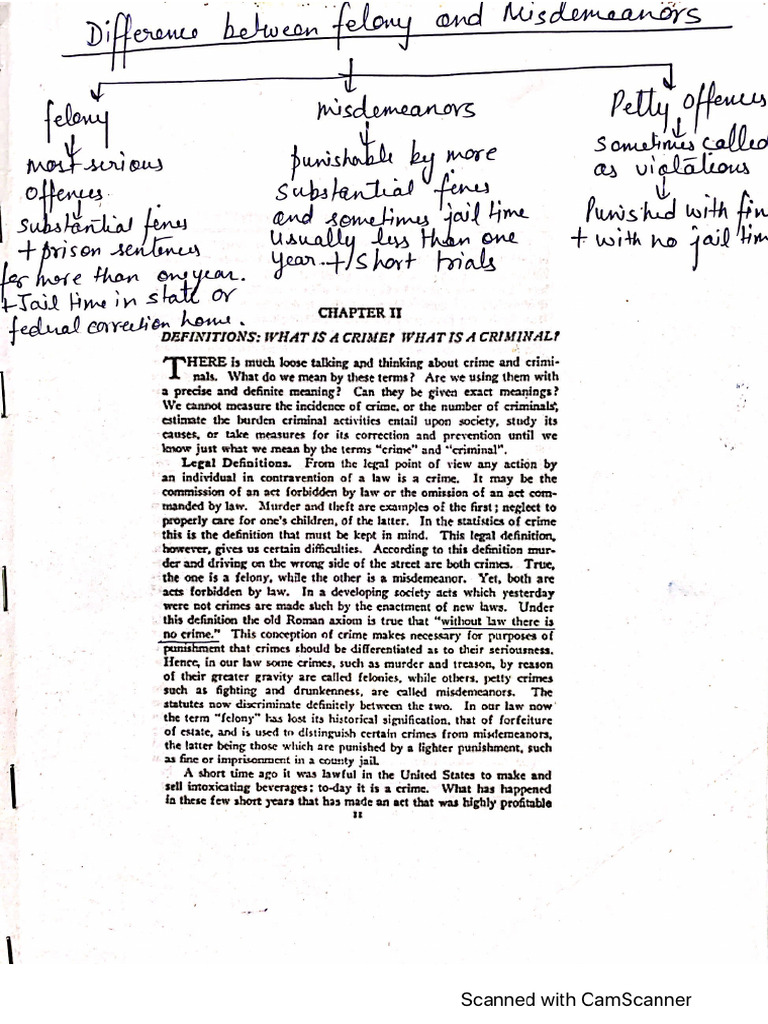 Difference between felony and Misdemeanors
felony
most serious
offences
substantial fines
+ prison sentences
for more than one year.
+ Jail time in state or
federal correction home.
misdemeanors
punishable by more
substantial fines
and sometimes jail time
usually less than one
year. + / short trials
Petty offences
sometimes called
as violations
Punished with fin
+ with no jail tim
CHAPTER II
DEFINITIONS: WHAT IS A CRIME? WHAT IS A CRIMINAL?
THERE is much loose talking and thinking about crime and crimi-
nals. What do we mean by these terms? Are we using them with
a precise and definite meaning? Can they be given exact meanings?
We cannot measure the incidence of crime, or the number of criminals,
estimate the burden criminal activities entail upon society, study its
causes, or take measures for its correction and prevention until we
know just what we mean by the terms "crime" and "criminal".
Legal Definitions. From the legal point of view any action by
an individual in contravention of a law is a crime. It may be the
commission of an act forbidden by law or the omission of an act com-
manded by law. Murder and theft are examples of the first; neglect to
properly care for one's children, of the latter. In the statistics of crime
this is the definition that must be kept in mind. This legal definition,
however, gives us certain difficulties. According to this definition mur-
der and driving on the wrong side of the street are both crimes. True,
the one is a felony, while the other is a misdemeanor. Yet, both are
acts forbidden by law. In a developing society acts which yesterday
were not crimes are made such by the enactment of new laws. Under
this definition the old Roman axiom is true that "without law there is
no crime." This conception of crime makes necessary for purposes of
punishment that crimes should be differentiated as to their seriousness.
Hence, in our law some crimes, such as murder and treason, by reason
of their greater gravity are called felonies, while others, petty crimes
such as fighting and drunkenness, are called misdemeanors. The
statutes now discriminate definitely between the two. In our law now
the term "felony" has lost its historical signification, that of forfeiture
of estate, and is used to distinguish certain crimes from misdemeanors,
the latter being those which are punished by a lighter punishment, such
as fine or imprisonment in a county jail.
A short time ago it was lawful in the United States to make and
sell intoxicating beverages; to-day it is a crime. What has happened
in these few short years that has made an act that was highly profitable
11
Scanned with CamScanner